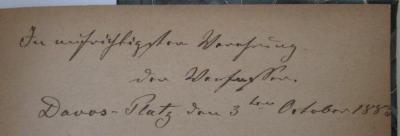 In aufrichtigster Verehrung
der Verfasser.
Davos-Platz den 3ten October